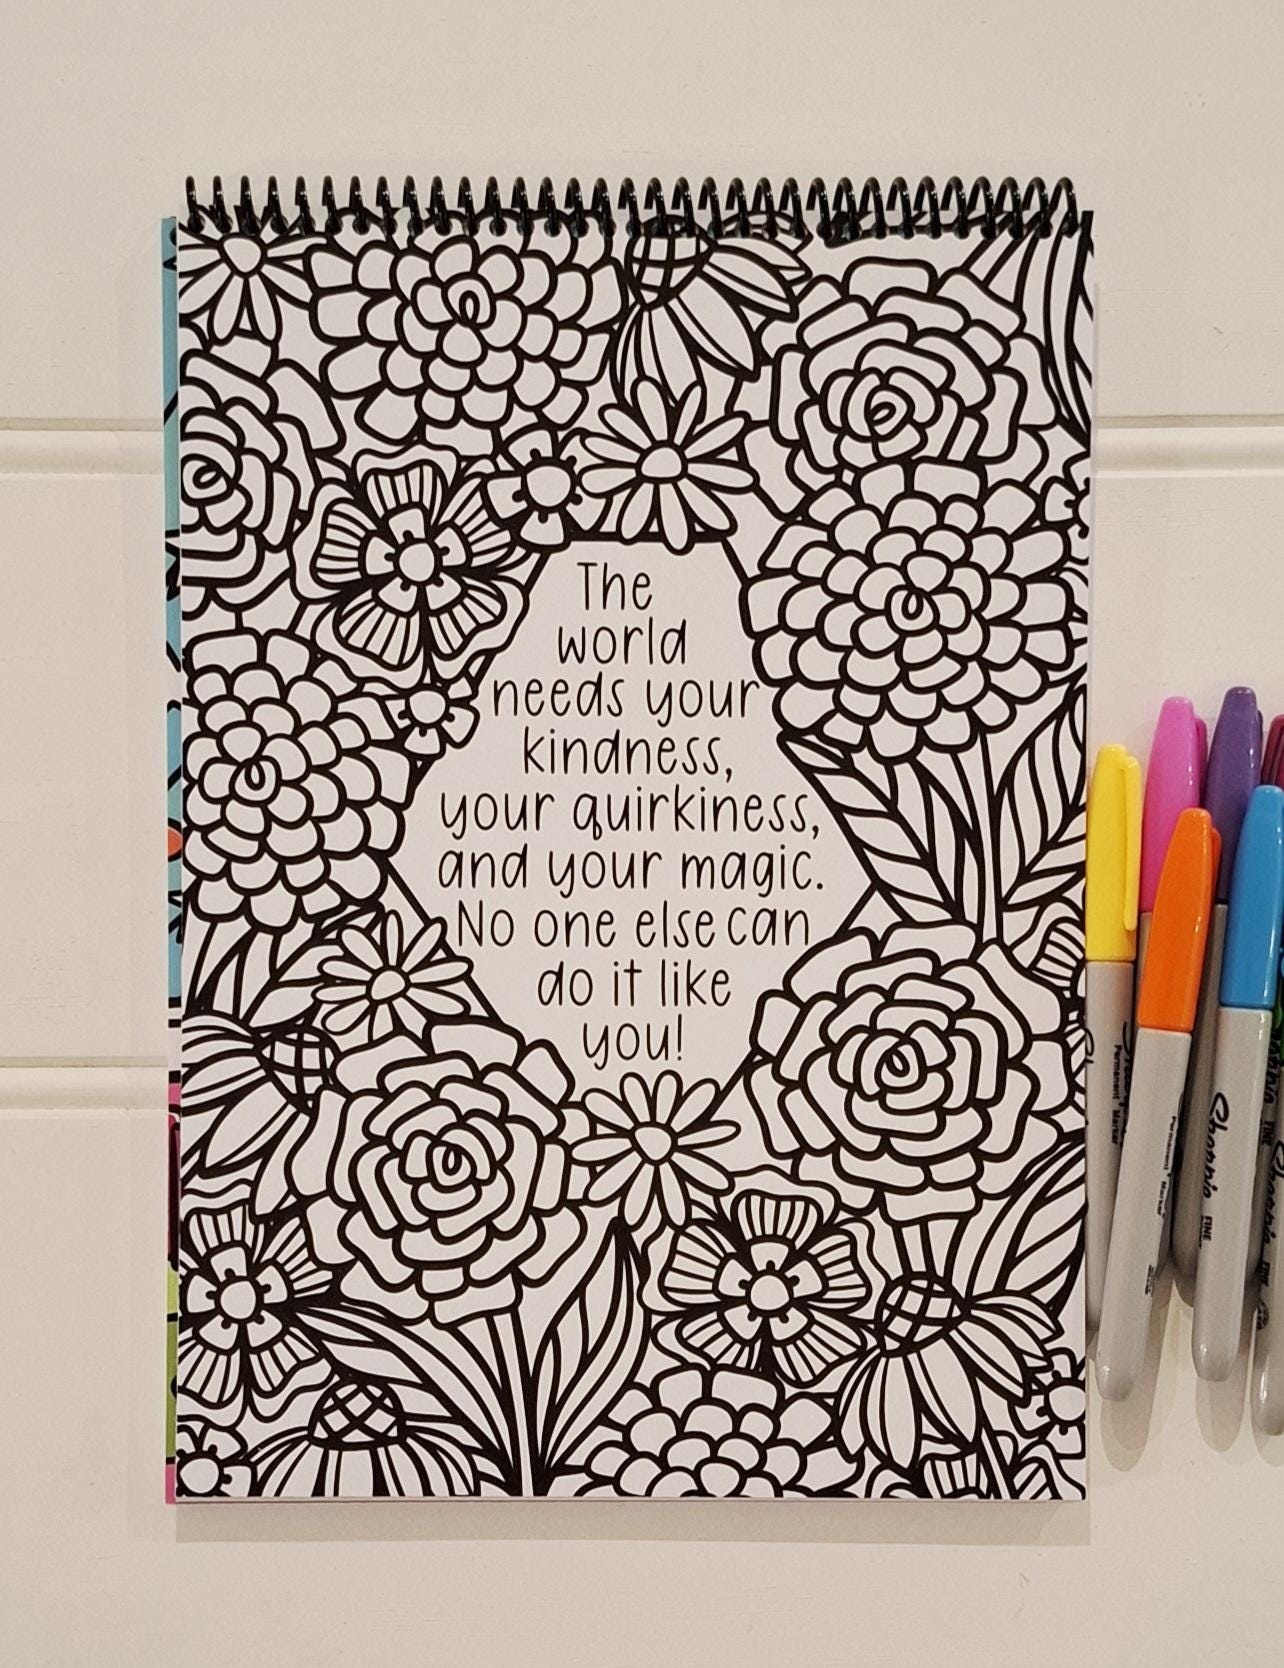 The
world
needs your
kindness,
your quirkiness,
and your magic.
No one else can
do it like
you!
Permanent Marker
Permanent Marker
Sharpie
FINE
Sharpie
FINE